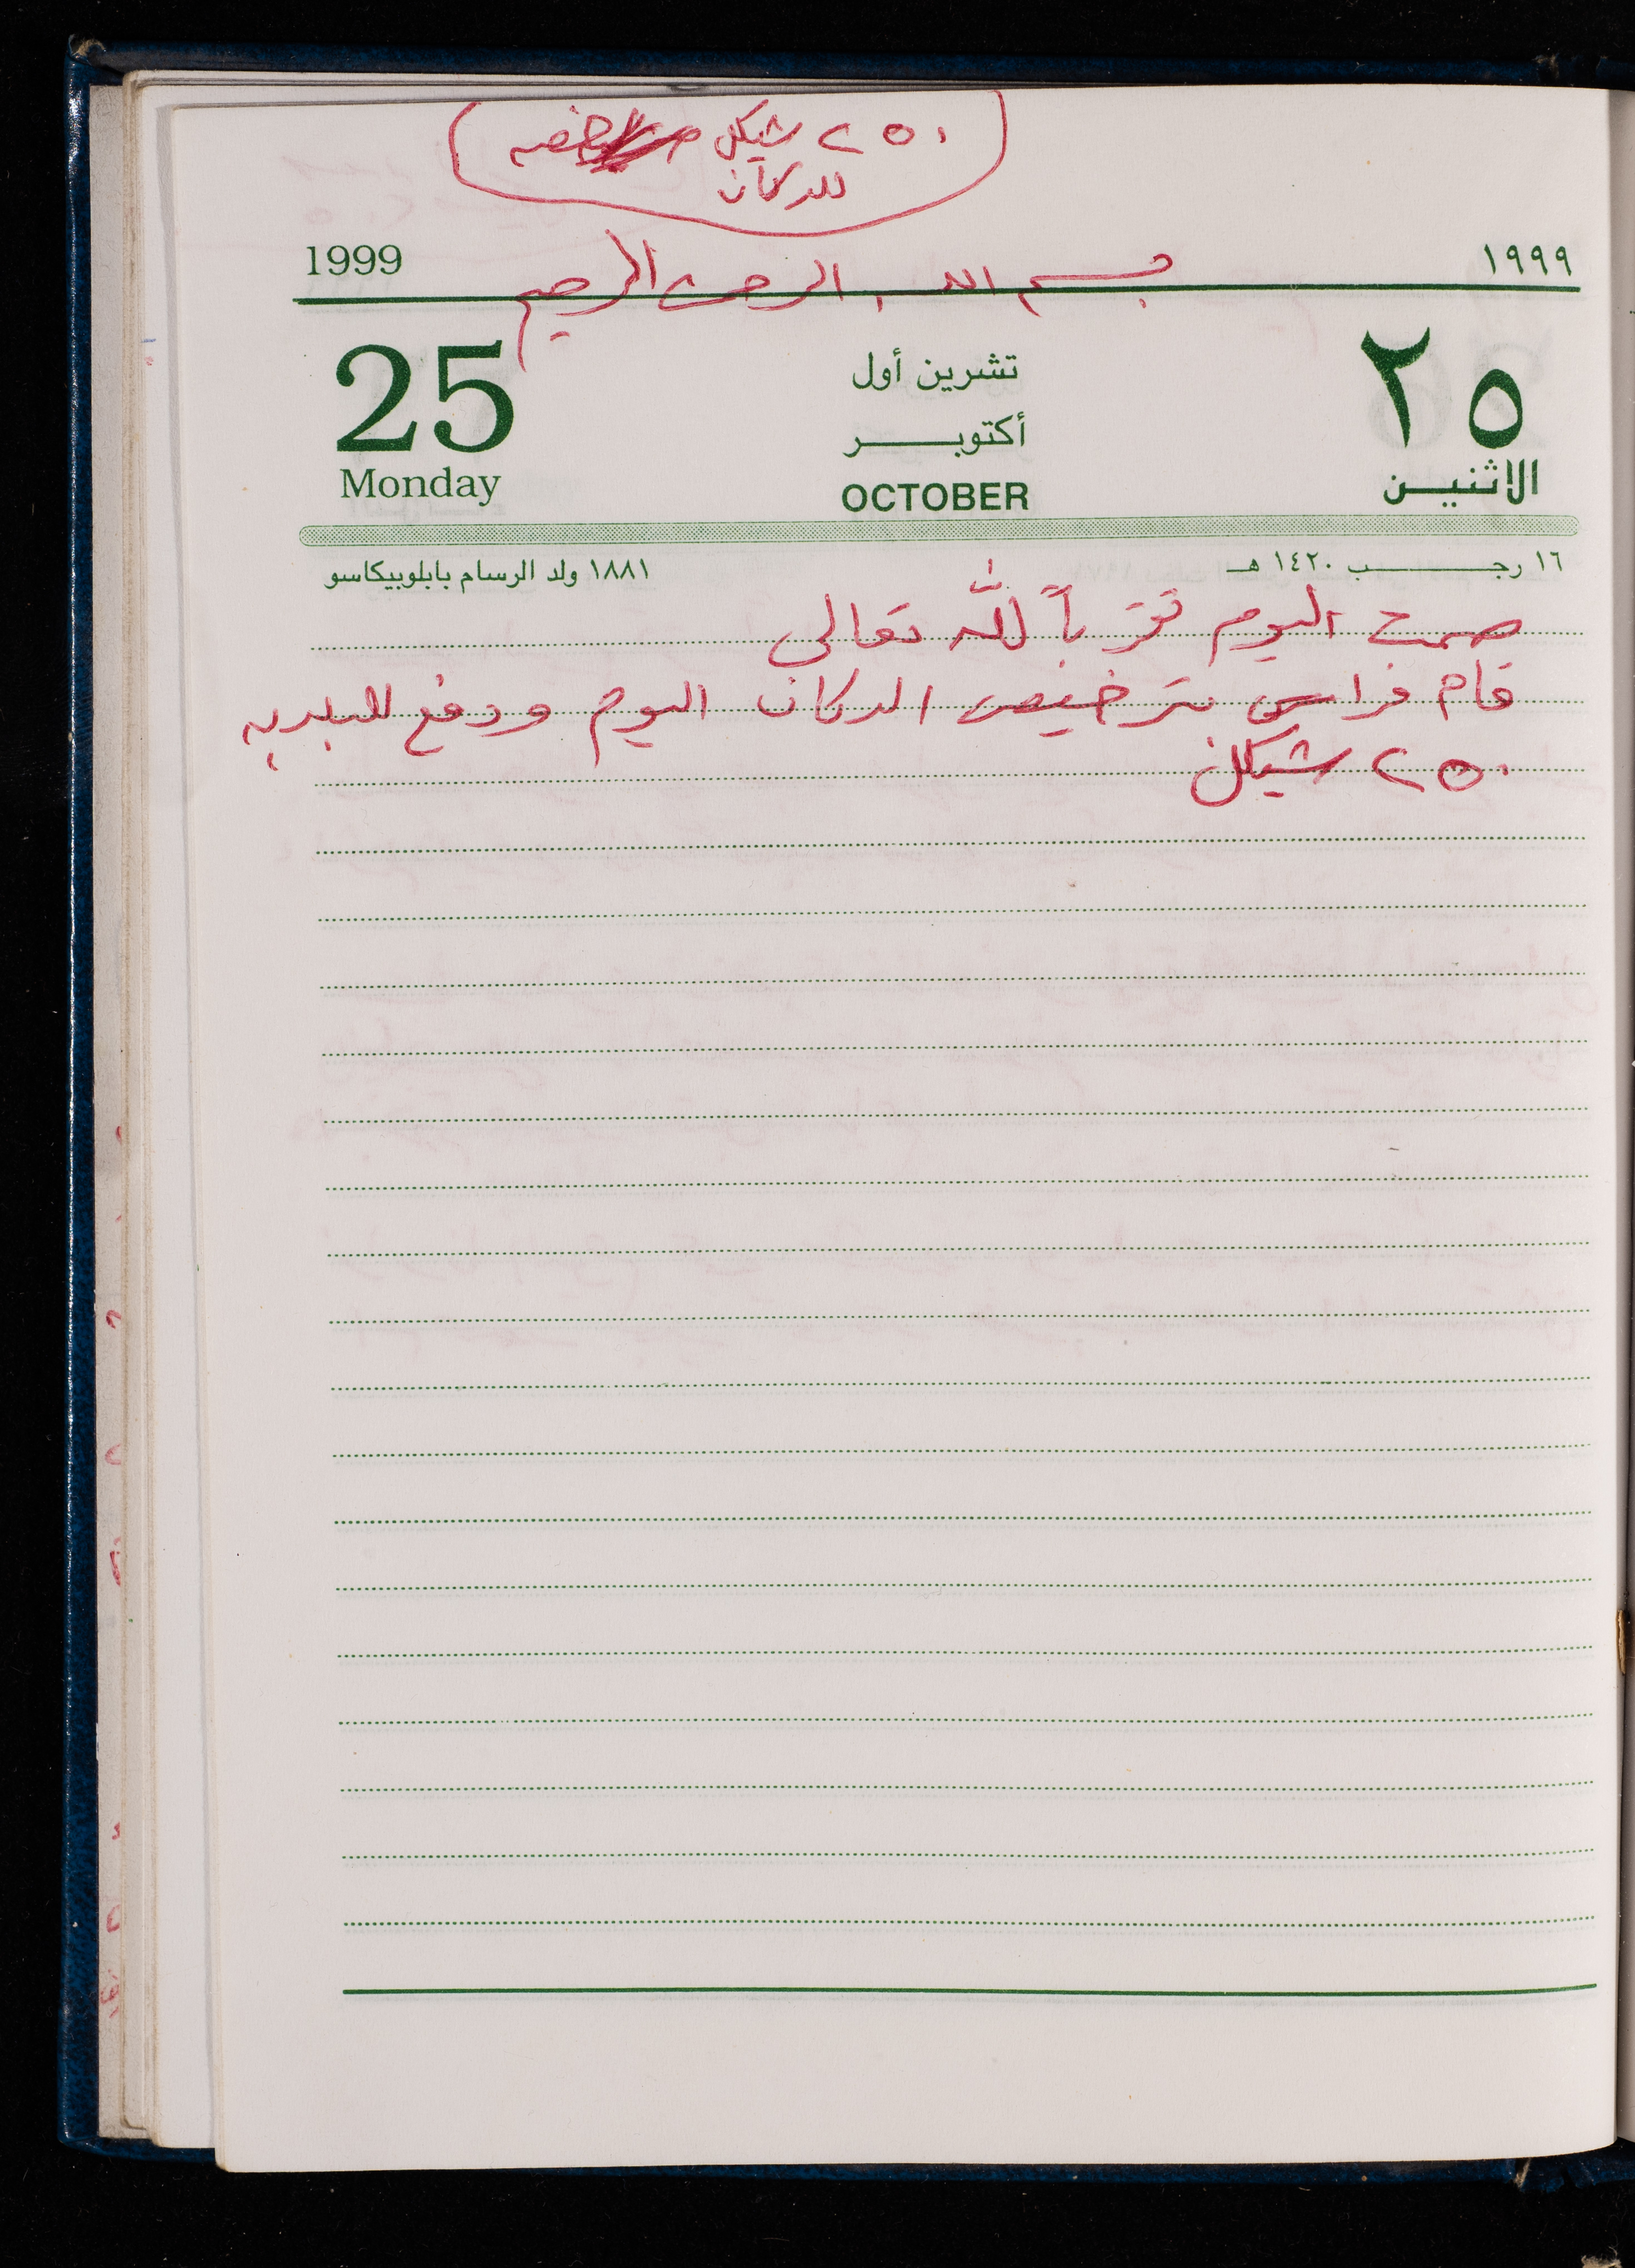 ٢٥٠ شيكل رخصه
للدكان
1999 بسم الله الرحمن الرحيم ١٩٩٩
25 تشرين أول ٢٥
أكتوبر
Monday OCTOBER الاثنين
١٦ رجب ١٤٢٠ هـ ١٨٨١ ولد الرسام بابلوبيكاسو
صمت اليوم تقرباً لله تعالى
قام فراس بترخيص الدكان اليوم ودفع للبلديه
٢٥٠ شيكل